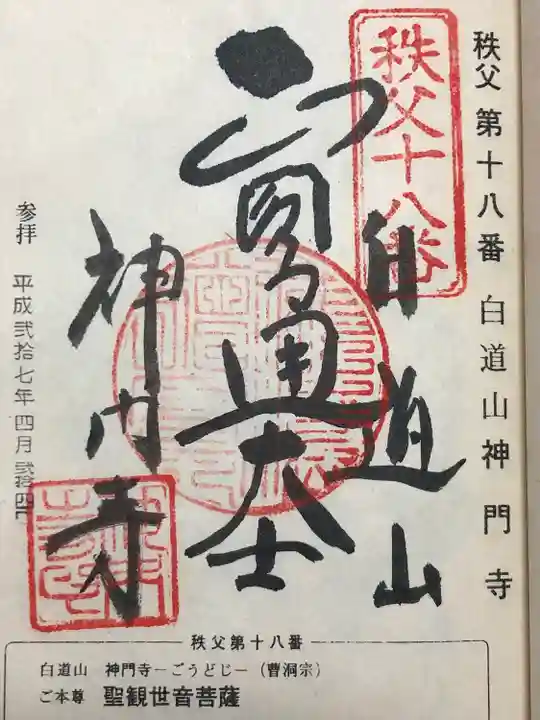 秩父第十八番 白道山神門寺
秩父十八番
白道山
圓通大士
神門寺
参拝 平成弐拾七年四月弐拾四日
秩父第十八番
白道山 神門寺－ごうどじ－（曹洞宗）
ご本尊 聖観世音菩薩